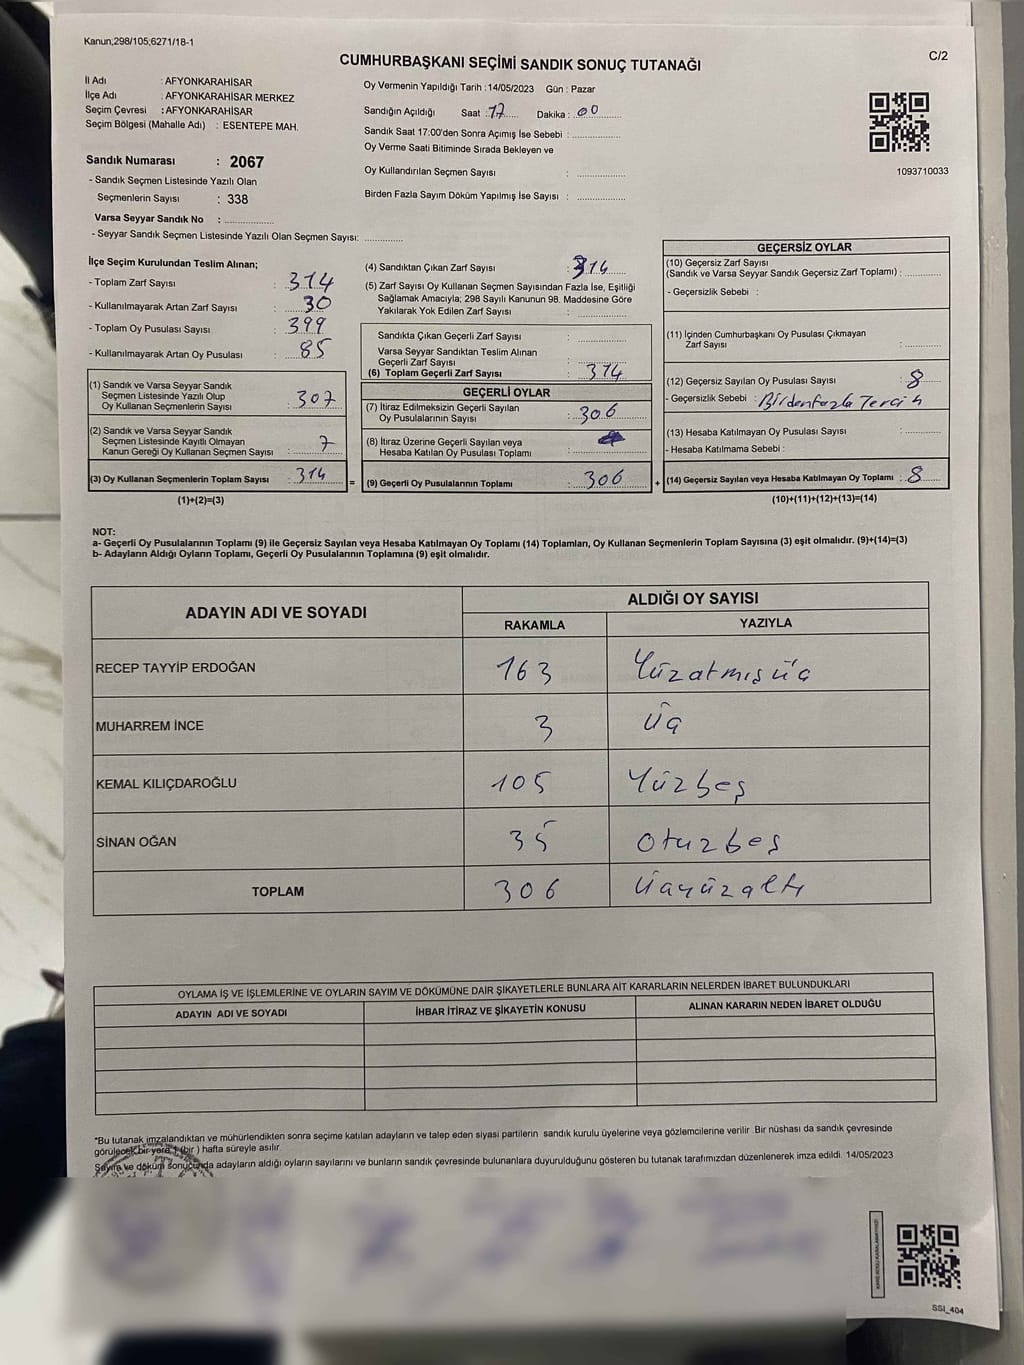 Kanun;298/105;6271/18-1
C/2
CUMHURBAŞKANI SEÇİMİ SANDIK SONUÇ TUTANAĞI
İl Adı : AFYONKARAHİSAR
İlçe Adı : AFYONKARAHİSAR MERKEZ
Seçim Çevresi : AFYONKARAHİSAR
Seçim Bölgesi (Mahalle Adı) : ESENTEPE MAH.
Sandık Numarası : 2067
- Sandık Seçmen Listesinde Yazılı Olan
Seçmenlerin Sayısı : 338
Varsa Seyyar Sandık No : ..............
- Seyyar Sandık Seçmen Listesinde Yazılı Olan Seçmen Sayısı: ............
Oy Vermenin Yapıldığı Tarih :14/05/2023 Gün : Pazar
Sandığın Açıldığı Saat : 17 Dakika : 00
Sandık Saat 17:00'den Sonra Açımış İse Sebebi : ..............
Oy Verme Saati Bitiminde Sırada Bekleyen ve
Oy Kullandırılan Seçmen Sayısı : ..............
Birden Fazla Sayım Döküm Yapılmış İse Sayısı : ..............
1093710033
İlçe Seçim Kurulundan Teslim Alınan;
- Toplam Zarf Sayısı : 314
- Kullanılmayarak Artan Zarf Sayısı : 30
- Toplam Oy Pusulası Sayısı : 399
- Kullanılmayarak Artan Oy Pusulası : 85
(1) Sandık ve Varsa Seyyar Sandık
Seçmen Listesinde Yazılı Olup
Oy Kullanan Seçmenlerin Sayısı : 307
(2) Sandık ve Varsa Seyyar Sandık
Seçmen Listesinde Kayıtlı Olmayan
Kanun Gereği Oy Kullanan Seçmen Sayısı : 7
(3) Oy Kullanan Seçmenlerin Toplam Sayısı : 314 =
(1)+(2)=(3)
(4) Sandıktan Çıkan Zarf Sayısı : 314
(5) Zarf Sayısı Oy Kullanan Seçmen Sayısından Fazla İse, Eşitliği
Sağlamak Amacıyla; 298 Sayılı Kanunun 98. Maddesine Göre
Yakılarak Yok Edilen Zarf Sayısı : ..............
Sandıkta Çıkan Geçerli Zarf Sayısı : ..............
Varsa Seyyar Sandıktan Teslim Alınan
Geçerli Zarf Sayısı : ..............
(6) Toplam Geçerli Zarf Sayısı : 314
GEÇERLİ OYLAR
(7) İtiraz Edilmeksizin Geçerli Sayılan
Oy Pusulalarının Sayısı : 306
(8) İtiraz Üzerine Geçerli Sayılan veya
Hesaba Katılan Oy Pusulası Toplamı : ..............
(9) Geçerli Oy Pusulalarının Toplamı : 306 +
GEÇERSİZ OYLAR
(10) Geçersiz Zarf Sayısı
(Sandık ve Varsa Seyyar Sandık Geçersiz Zarf Toplamı) : ............
- Geçersizlik Sebebi :
(11) İçinden Cumhurbaşkanı Oy Pusulası Çıkmayan
Zarf Sayısı : ............
(12) Geçersiz Sayılan Oy Pusulası Sayısı : 8
- Geçersizlik Sebebi : Birdenfazla Tercih
(13) Hesaba Katılmayan Oy Pusulası Sayısı : ............
- Hesaba Katılmama Sebebi :
(14) Geçersiz Sayılan veya Hesaba Katılmayan Oy Toplamı : 8
(10)+(11)+(12)+(13)=(14)
NOT:
a- Geçerli Oy Pusulalarının Toplamı (9) ile Geçersiz Sayılan veya Hesaba Katılmayan Oy Toplamı (14) Toplamları, Oy Kullanan Seçmenlerin Toplam Sayısına (3) eşit olmalıdır. (9)+(14)=(3)
b- Adayların Aldığı Oyların Toplamı, Geçerli Oy Pusulalarının Toplamına (9) eşit olmalıdır.
ADAYIN ADI VE SOYADI ALDIĞI OY SAYISI
RAKAMLA YAZIYLA
RECEP TAYYİP ERDOĞAN 163 Yüzatmışüç
MUHARREM İNCE 3 üç
KEMAL KILIÇDAROĞLU 105 Yüzbeş
SİNAN OĞAN 35 otuzbeş
TOPLAM 306 üçyüzaltı
OYLAMA İŞ VE İŞLEMLERİNE VE OYLARIN SAYIM VE DÖKÜMÜNE DAİR ŞİKAYETLERLE BUNLARA AİT KARARLARIN NELERDEN İBARET BULUNDUKLARI
ADAYIN ADI VE SOYADI İHBAR İTİRAZ VE ŞİKAYETİN KONUSU ALINAN KARARIN NEDEN İBARET OLDUĞU
*Bu tutanak imzalandıktan ve mühürlendikten sonra seçime katılan adayların ve talep eden siyasi partilerin sandık kurulu üyelerine veya gözlemcilerine verilir .Bir nüshası da sandık çevresinde
görülecek bir yere 1 (bir ) hafta süreyle asılır.
Sayım ve döküm sonucunda adayların aldığı oyların sayılarını ve bunların sandık çevresinde bulunanlara duyurulduğunu gösteren bu tutanak tarafımızdan düzenlenerek imza edildi. 14/05/2023
SSI_404